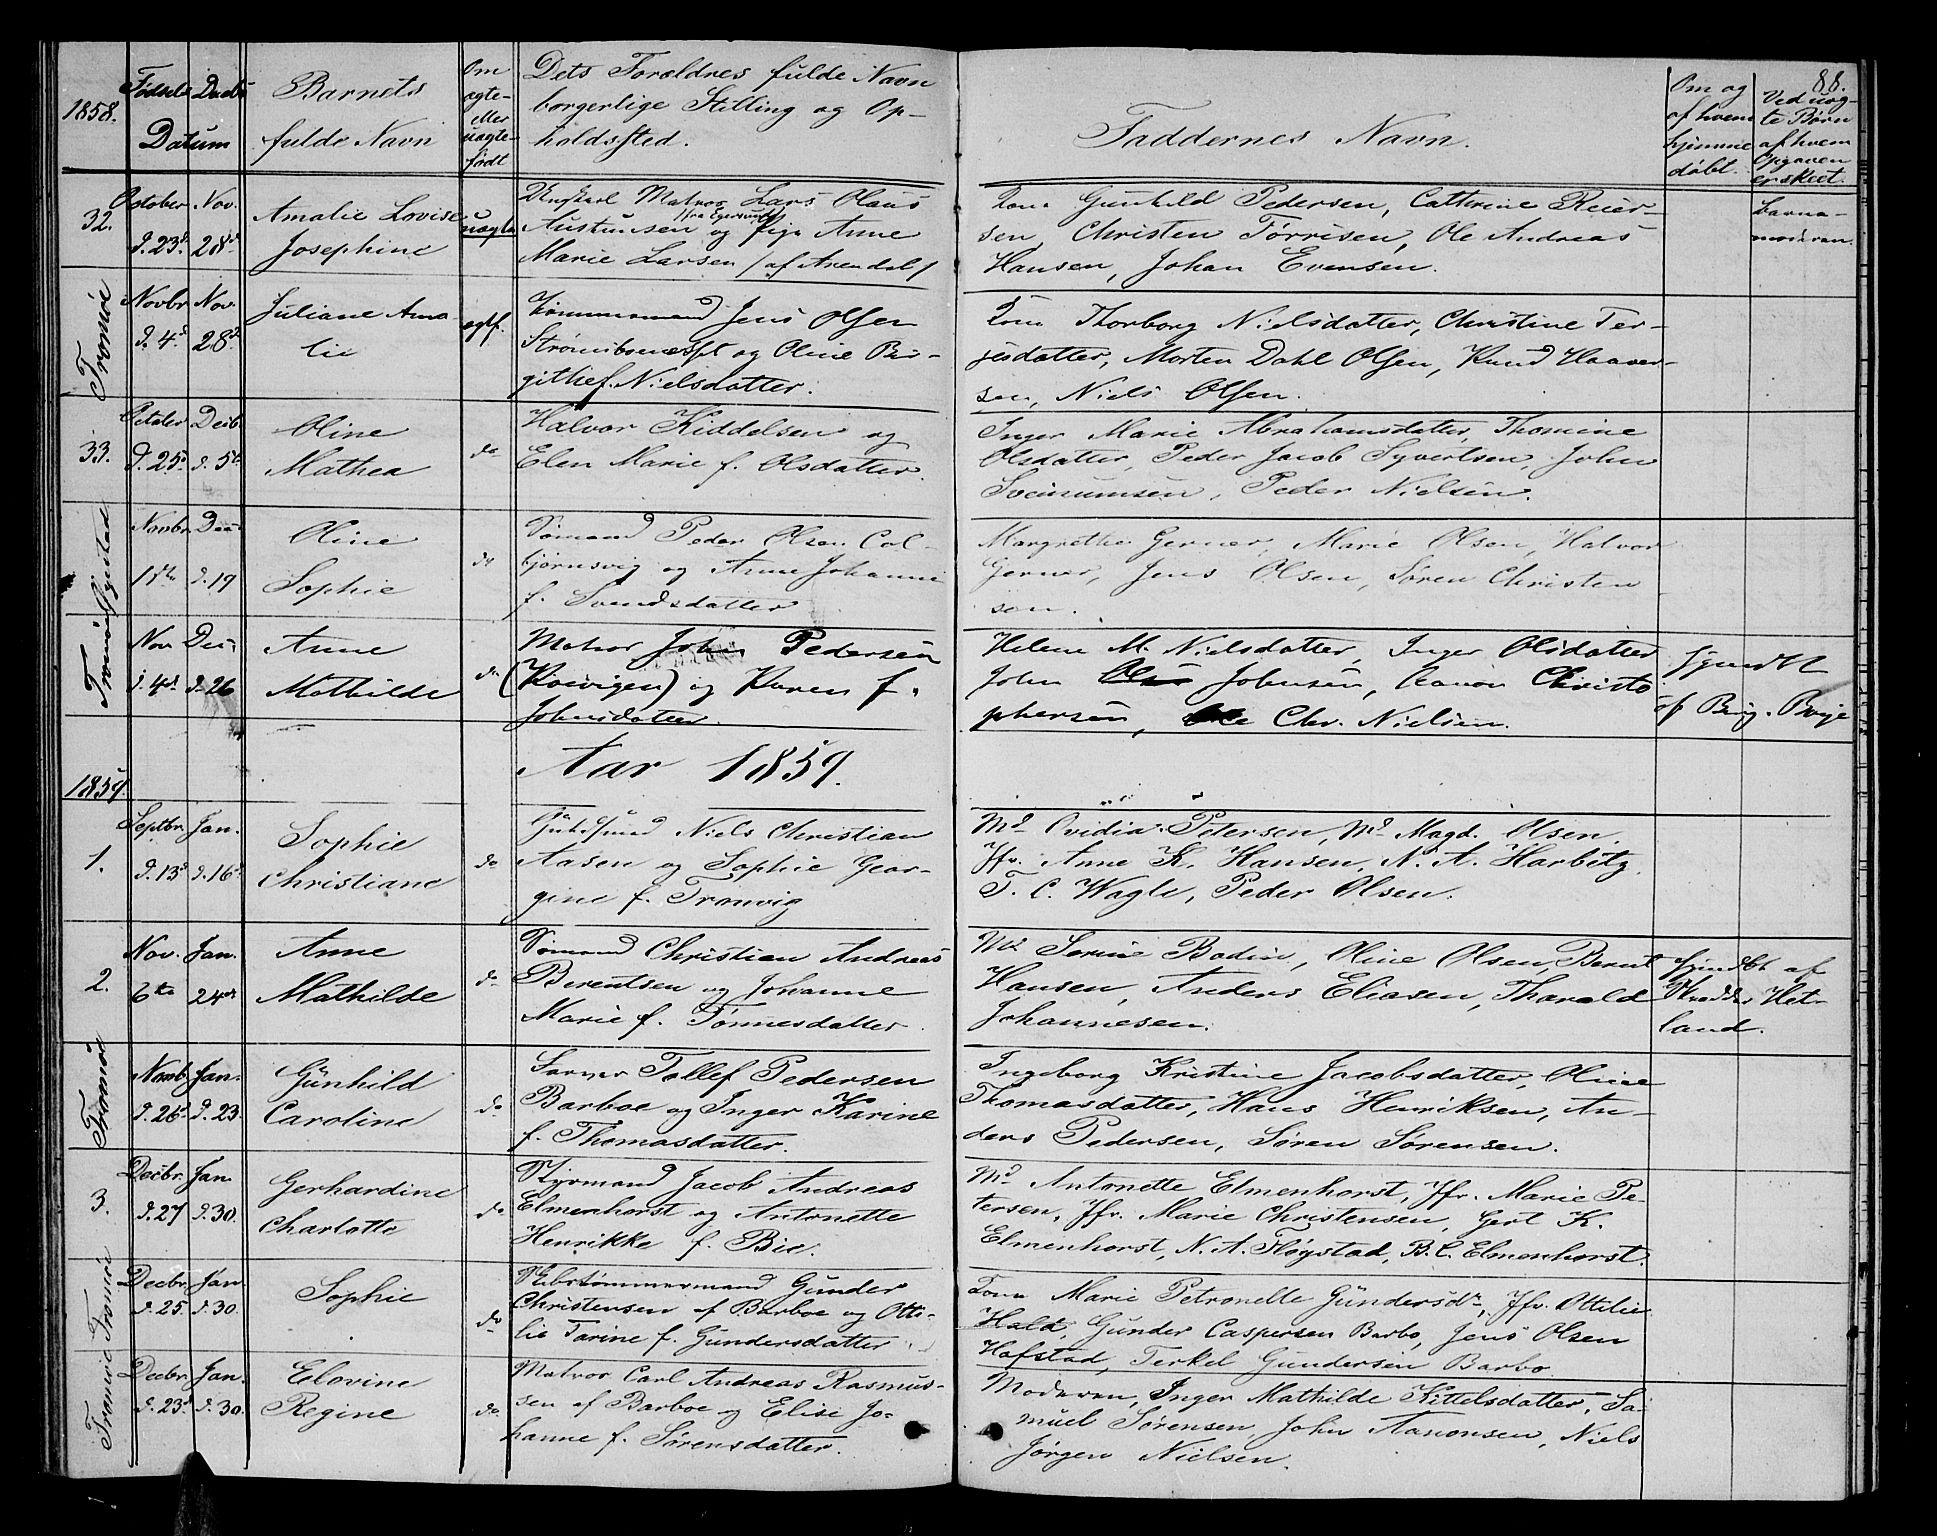 88.
1858.
Fødsels Daabs
Datum
Barnets
fulde Navn
Om
ægte
eller
uægte
født
Dets Forældres fulde Navn
borgerlige Stilling og Op-
holdssted.
Faddernes Navn.
Om og
af hvem
hjemme
døbt.
Ved uæg-
te Børn
af hvem
Opgaven
er skeet.
32.
October Nov.
d. 23d 28d
Amalie Lovise
Josephine
uægte
Ungkarl Matros Lars Olaus
/fra Egersund/
Austunsen og Pige Anne
Marie Larsen /af Arendal/
Kone Gunhild Pedersen, Cathrine Reier-
sen, Christen Tørrisen, Ole Andreas
Hansen, Johan Evensen.
barna-
moderen.
Tromöe
Novbr Nov.
d. 4d 28d
Juliane Ama-
lie
ægtf.
Tømmermand Jens Olsen
Strømsboneset og Oline Bir-
githe f. Nielsdatter.
Kone Thorborg Nielsdatter, Christine Ter-
jesdatter, Morten Dahl Olsen, Knud Haaver-
sen, Niels Olsen.
33.
October Decb.
d. 25 d. 5
Oline
Mathea
do
Halvor Kiddelsen og
Elen Marie f. Olsdatter.
Inger Marie Abrahamsdatter, Thomine
Olsdatter, Peder Jacob Syvertsen, John
Svenumsen, Peder Nielsen.
Øyestad
Novbr. Dec.
17de d. 19
Oline
Sophie
do
Sømand Peder Olsen Col-
bjørnsvig og Anne Johanne
f. Svendsdatter
Margrethe Gerner, Marie Olsen, Halvor
Gerner, Jens Olsen, Søren Christen
sen.
Tromöe
Nov Dec.
d. 4d d. 26
Anne
Mathilde
do
Matros John Pedersen
(Kovigen) og Karen f.
Johnsdatter.
Helene M. Nielsdatter, Inger Olsdatter
John Johnsen, Aanon Christo
phersen, Chr. Nielsen.
hjemdbt
af Berg. Boye
Aar 1859.
1859.
1.
Septbr. Jan.
d. 13d d. 16d
Sophie
Christiane
do
Niels Christian
Aasen og Sophie Geor-
gine f. Tronvig
Md Ovidia Petersen, Md Magd. Olsen
Jfr. Anne K. Hansen, N. A. Harbitz,
T. C. Wagle, Peder Olsen.
2.
Nov. Jan.
6te 24de
Anne
Mathilde
do
Sømand Christian Andreas
Berentsen og Johanne
Marie f. Tønnesdatter.
Md Serine Bodin, Oline Olsen, Bernt
Hansen, Anders Eliasen, Tharald
Johannesen.
hjemdbt af
Madda Het-
land.
Tromöe
Novb. Jan.
d. 26d d. 23.
Günhild
Caroline
do
Sarger Tollef Pedersen
Barboe og Inger Karine
f. Thomasdatter.
Ingeborg Kristine Jacobsdatter, Oline
Thomasdatter, Hans Henriksen, An-
ders Pedersen, Søren Sørensen.
3.
Decbr. Jan.
d. 27 d. 30.
Gerhardine
Charlotte
do
Styrmand Jacob Andreas
Elmenhorst og Antonette
Henrikke f. Bie.
Md Antonette Elmenhorst, Jfr. Marie Pe-
tersen, Jfr. Marie Christensen, Gert K.
Elmenhorst, N. A. Fløystad, B. C. Elmenhorst.
Tromöe
Decbr. Jan.
d. 25. d. 30.
Sophie
do
Skibstømmermand Gunder
Christensen af Barboe og Otti-
lie Tarine f. Gundersdatter
Kone Marie Petronelle Gündersdr, Jfr. Ottilie
Hald, Gunder Caspersen Barbo, Jens Olsen
Hafstad, Terkel Gundersen Barbo.
Tromöe
Decbr. Jan.
d. 23d d. 30.
Elovine
Regine
do
Matros Carl Andreas Rasmus-
sen af Barboe og Elise Jo-
hanne f. Sørensdatter.
Moderen, Inger Mathilde Kittelsdatter, Sa-
muel Sørensen, John Aanonsen, Niels
Jørgen Nielsen.